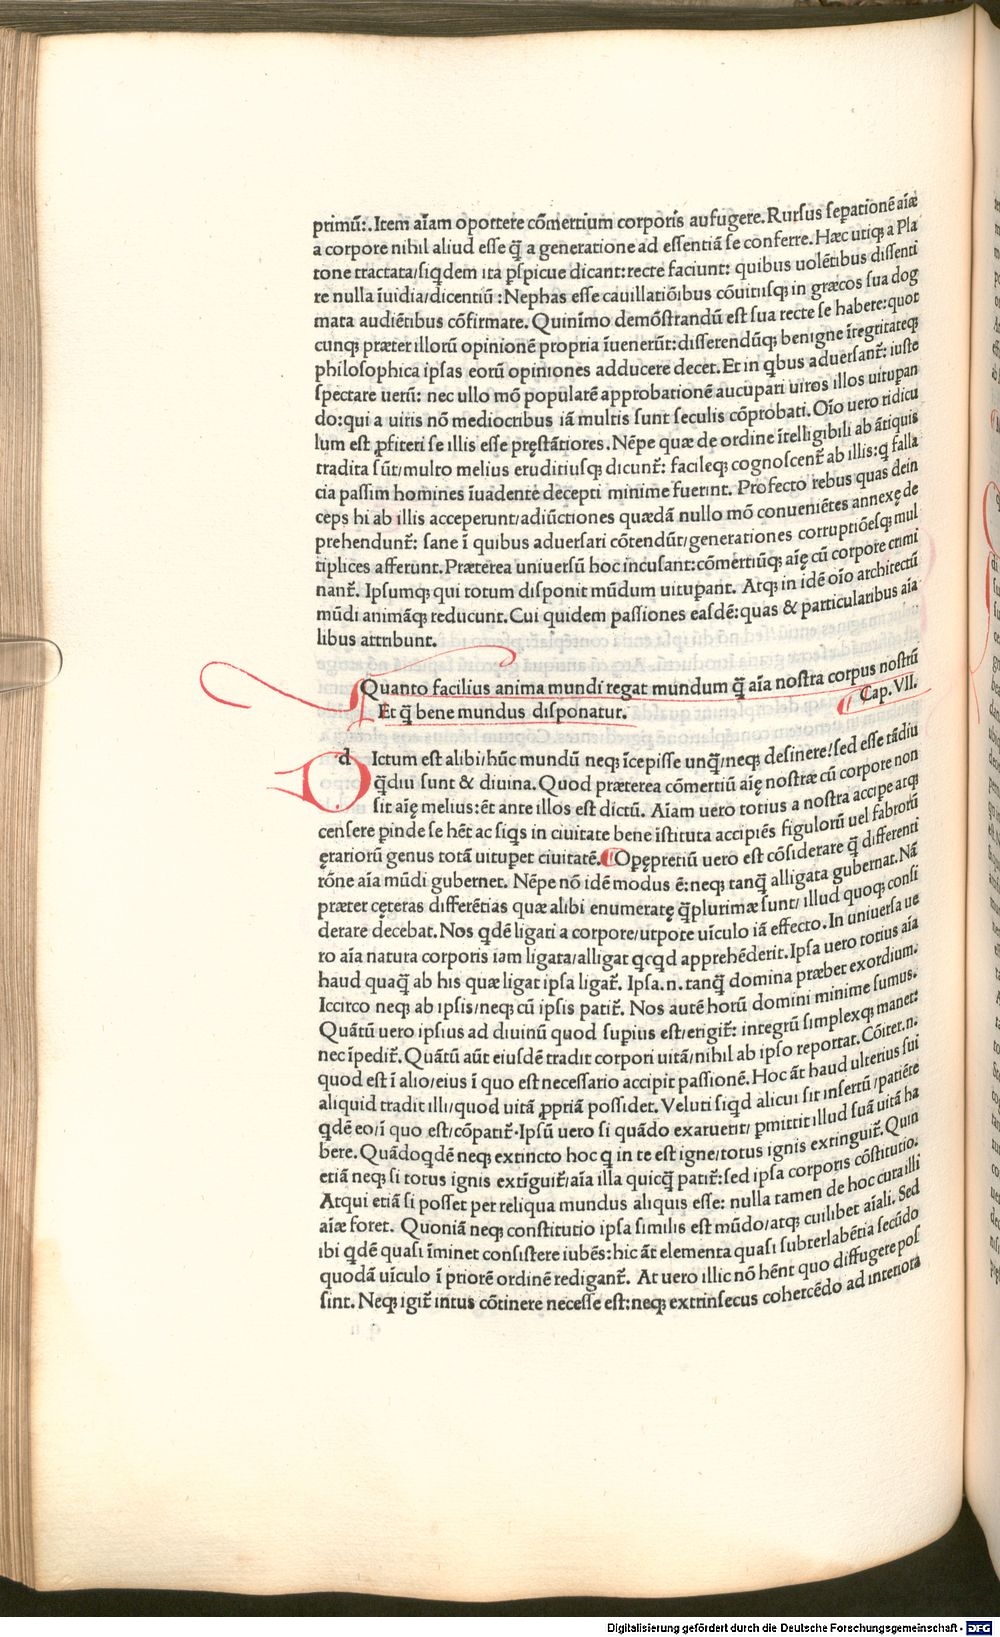 primū:. Item aīam oportere cōmertium corporis aufugere. Rursus sepationē aīæ
a corpore nihil aliud esse q̄ a generatione ad essentiā se conferre. Hæc utiqꝫ a Pla
tone tractata/siqdem ita pspicue dicant: recte faciunt: quibus uolētibus dissenti
re nulla īuidia/dicentiū: Nephas esse cauillatiōibus cōuitiisqꝫ in græcos sua dog
mata audiētibus cōfirmare. Quinīmo demōstrandū est sua recte se habere: quot
cunqꝫ præter illorū opinionē propria īuenerūt: disserendūqꝫ benigne ītegritateqꝫ
philosophica ipsas eorū opiniones adducere decet. Et in qbus aduersant̄: iuste
spectare uerū: nec ullo mō popularē approbationē aucupari uiros illos uitupan
do: qui a uiris nō mediocribus iā multis sunt seculis cōprobati. Oīo uero ridicu
lum est ꝓfiteri se illis esse pręstātiores. Nēpe quæ de ordine ītelligibili ab ātiquis
tradita sūt/multo melius eruditiusqꝫ dicunt̄: facileqꝫ cognoscent̄ ab illis: q falla
cia passim homines īuadente decepti minime fuerint. Profecto rebus quas dein
ceps hi ab illis acceperunt/adiūctiones quædā nullo mō conueniētes annexę de
prehendunt̄: sane ī quibus aduersari cōtendūt/generationes corruptiōesqꝫ mul
tiplices afferunt. Præterea uniuersū hoc incusant: cōmertiūqꝫ aię cū corpore crimi
nant̄. Ipsumqꝫ qui totum disponit mūdum uitupant. Atqꝫ in idē oīo architectū
mūdi animāqꝫ reducunt. Cui quidem passiones easdē: quas & particularibus aīa
libus attribunt.
Quanto facilius anima mundi regat mundum q̄ aīa nostra corpus nostrū
Et q̄ bene mundus disponatur. Cap. VII.
dIctum est alibi/hūc mundū neqꝫ īcepisse unq̄/neqꝫ desinere: sed esse tādiu
q̄diu sunt & diuina. Quod præterea cōmertiū aię nostræ cū corpore non
sit aię melius: ēt ante illos est dictū. Aīam uero totius a nostra accipe atqꝫ
censere pinde se hēt ac siqs in ciuitate bene īstituta accipiēs figulorū uel fabrorū
ęrariorū genus totā uitupet ciuitatē. Opępretiū uero est cōsiderare q̄ differenti
rōne aīa mūdi gubernet. Nēpe nō idē modus ē: neqꝫ tanq̄ alligata gubernat. Nā
præter cęteras differētias quæ alibi enumeratę q̄plurimæ sunt/ illud quoqꝫ consi
derare decebat. Nos qdē ligari a corpore/utpote uīculo iā effecto. In uniuersa ue
ro aīa natura corporis iam ligata/alligat qcqd apprehēderit. Ipsa uero totius aīa
haud quaq̄ ab his quæ ligat ipsa ligat̄. Ipsa.n. tanq̄ domina præbet exordium.
Iccirco neqꝫ ab ipsis/neqꝫ cū ipsis patit̄. Nos autē horū domini minime sumus.
Quātū uero ipsius ad diuinū quod supius est/erigit̄: integrū simplexqꝫ manet:
nec īpedit̄. Quātū aūt eiusdē tradit corpori uitā/nihil ab ipso reportat. Cōiter.n.
quod est ī alio/eius ī quo est necessario accipit passionē. Hoc āt haud ulterius sui
aliquid tradit illi/quod uitā ꝓpriā possidet. Veluti siqd alicui sit insertū/patiēte
qdē eo/ī quo est/cōpatit̄. Ipsū uero si quādo exaruerit/ pmittit illud suā uitā ha
bere. Quādoqdē neqꝫ extincto hoc q in te est igne/totus ignis extinguit̄. Quin
etiā neqꝫ si totus ignis extīguit̄/aīa illa quicq̄ patit̄: sed ipsa corporis cōstitutio.
Atqui etiā si posset per reliqua mundus aliquis esse: nulla tamen de hoc cura illi
aīæ foret. Quoniā neqꝫ constitutio ipsa similis est mūdo/atqꝫ cuilibet aīali. Sed
ibi qdē quasi īminet consistere iubēs: hic āt elementa quasi subterlabētia secūdo
quodā uīculo ī priorē ordinē redigant̄. At uero illic nō hēnt quo diffugere pos
sint. Neqꝫ igit̄ intus cōtinere necesse est: neqꝫ extrinsecus cohercēdo ad interiora
Digitalisierung gefördert durch die Deutsche Forschungsgemeinschaft - DFG